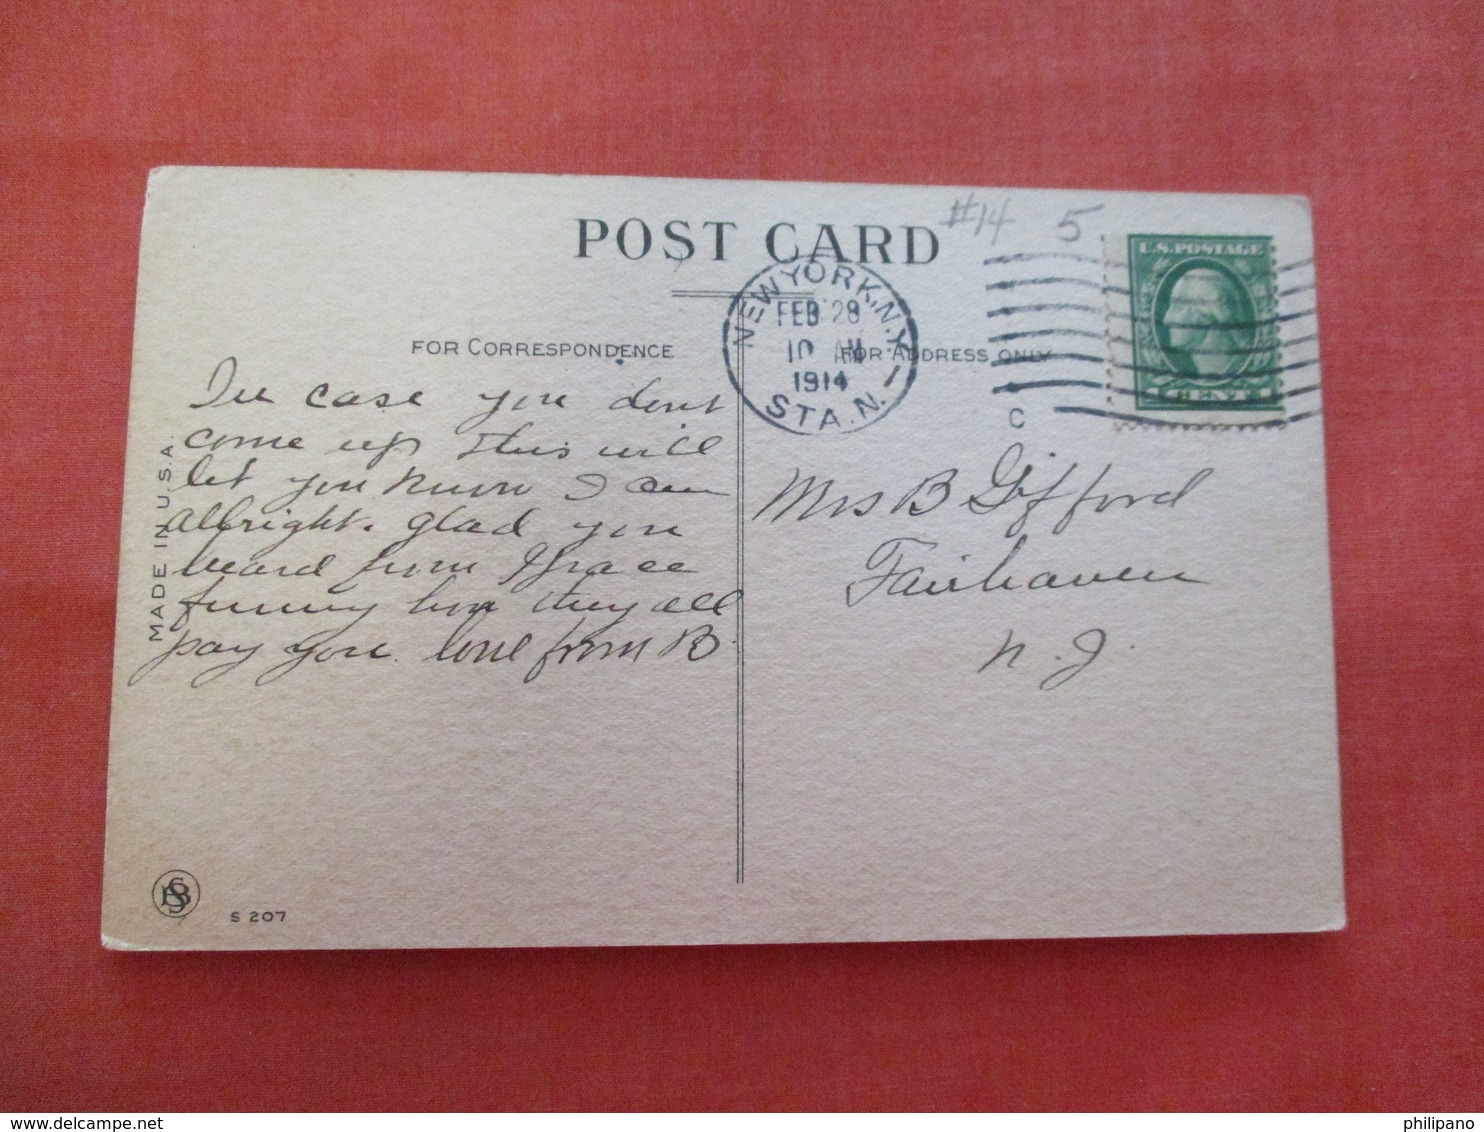 POST CARD
#14 5
U.S. POSTAGE
1 CENT 1
NEW YORK, N.Y.
FEB 28
10 AM
1914
STA. N.
1
C
FOR CORRESPONDENCE
FOR ADDRESS ONLY
In case you dont
come up this will
let you know I am
allright. glad you
heard from Grace
funny how they all
pay you. love from B.
Mrs B Gifford
Fairhaven
N. J.
MADE IN U.S.A.
S 207
philipano
delcampe.net